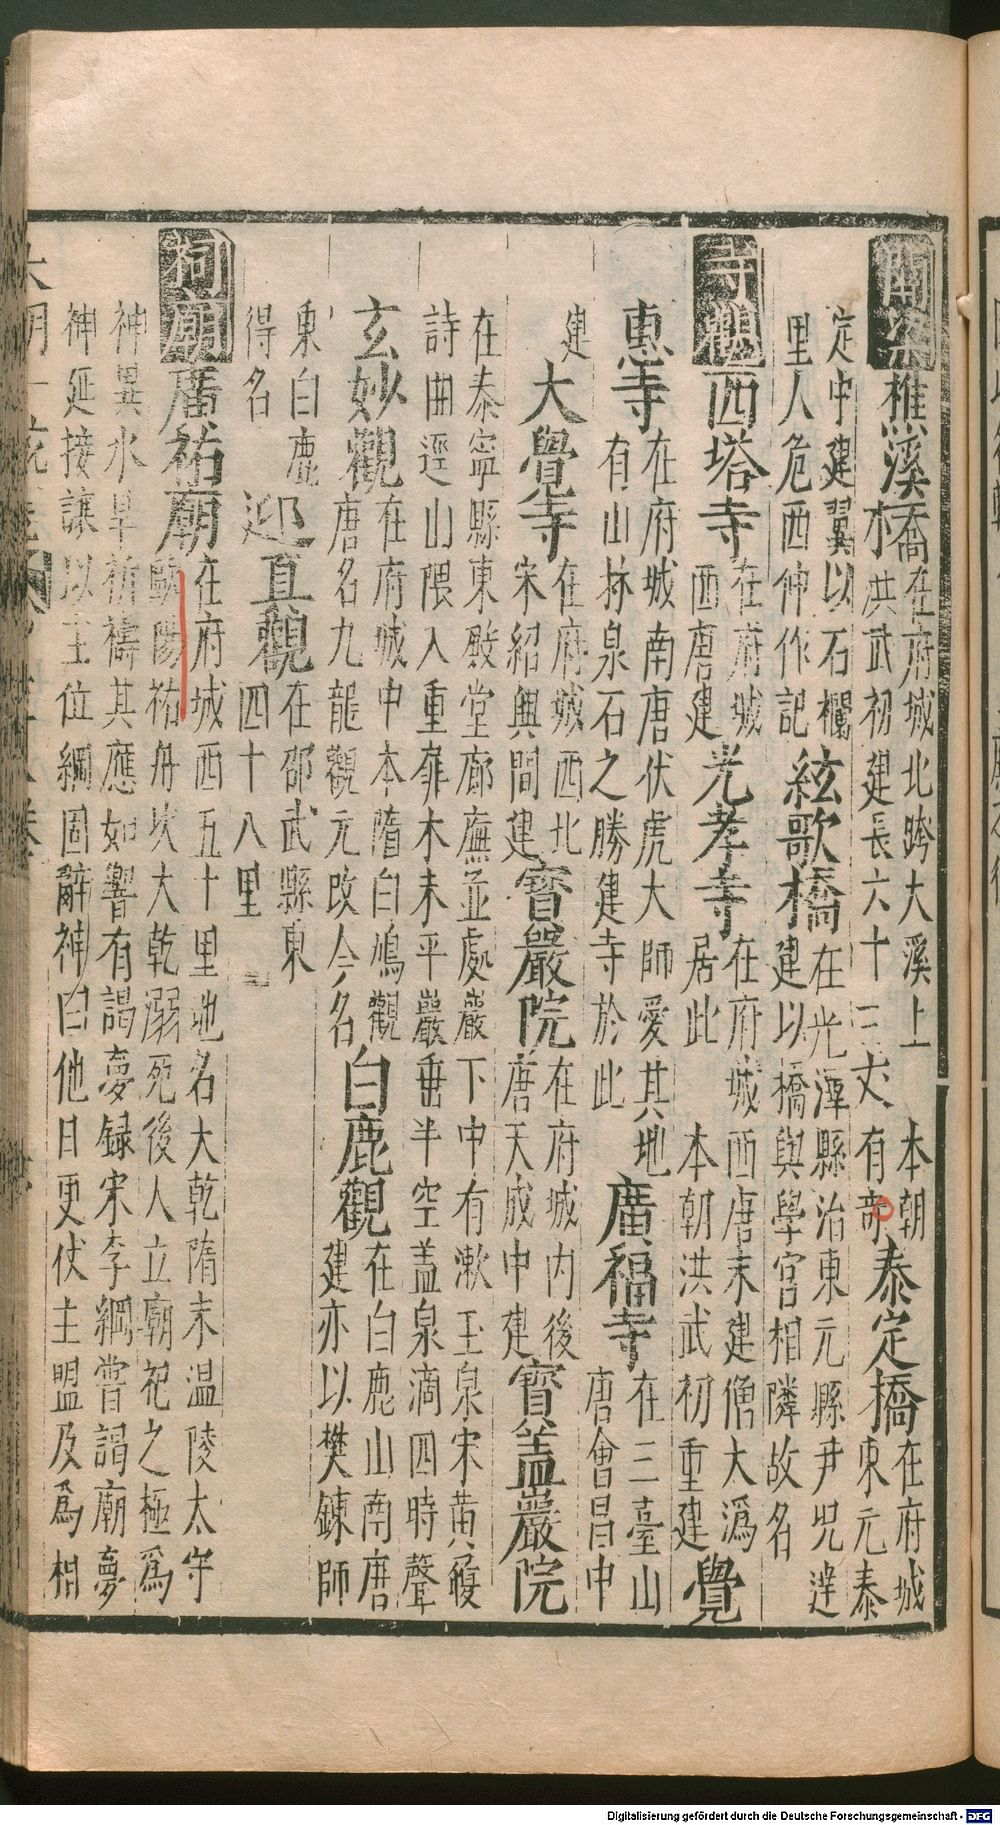 關梁樵溪橋在府城北跨大溪上 本朝
洪武初建長六十三丈有奇泰定橋在府城
東元泰
定中建翼以石欄絃歌橋在光澤縣治東元縣尹況逵
里人危西仲作記 建以橋與學宮相隣故名
寺觀西塔寺在府城
西唐建光孝寺在府城西唐末建僧大溈
居此 本朝洪武初重建覺
惠寺在府城南唐伏虎大師愛其地
有山林泉石之勝建寺於此廣福寺在三臺山
唐會昌中
建大覺寺在府城西北
宋紹興間建寶嚴院在府城内後
唐天成中建寶蓋巖院
在泰寧縣東殿堂廊廡並處巖下中有漱玉泉宋黄
詩曲逕山隈入重扉木末平巖垂半空蓋泉滴四時聲
玄妙觀在府城中本隋白鳩觀
唐名九龍觀元改今名白鹿觀在白鹿山南唐
建亦以樊鍊師
東白鹿
得名迎直觀在邵武縣東
四十八里
祠廟廣祐廟在府城西五十里地名大乾隋末温陵太守
歐陽祐舟次大乾溺死後人立廟祀之極爲
神異水旱祈禱其應如響有謁夢録宋李綱嘗謁廟夢
神延接讓以主位綱固辭神曰他日更伏主盟及爲相
Digitalisierung gefördert durch die Deutsche Forschungsgemeinschaft - DFG